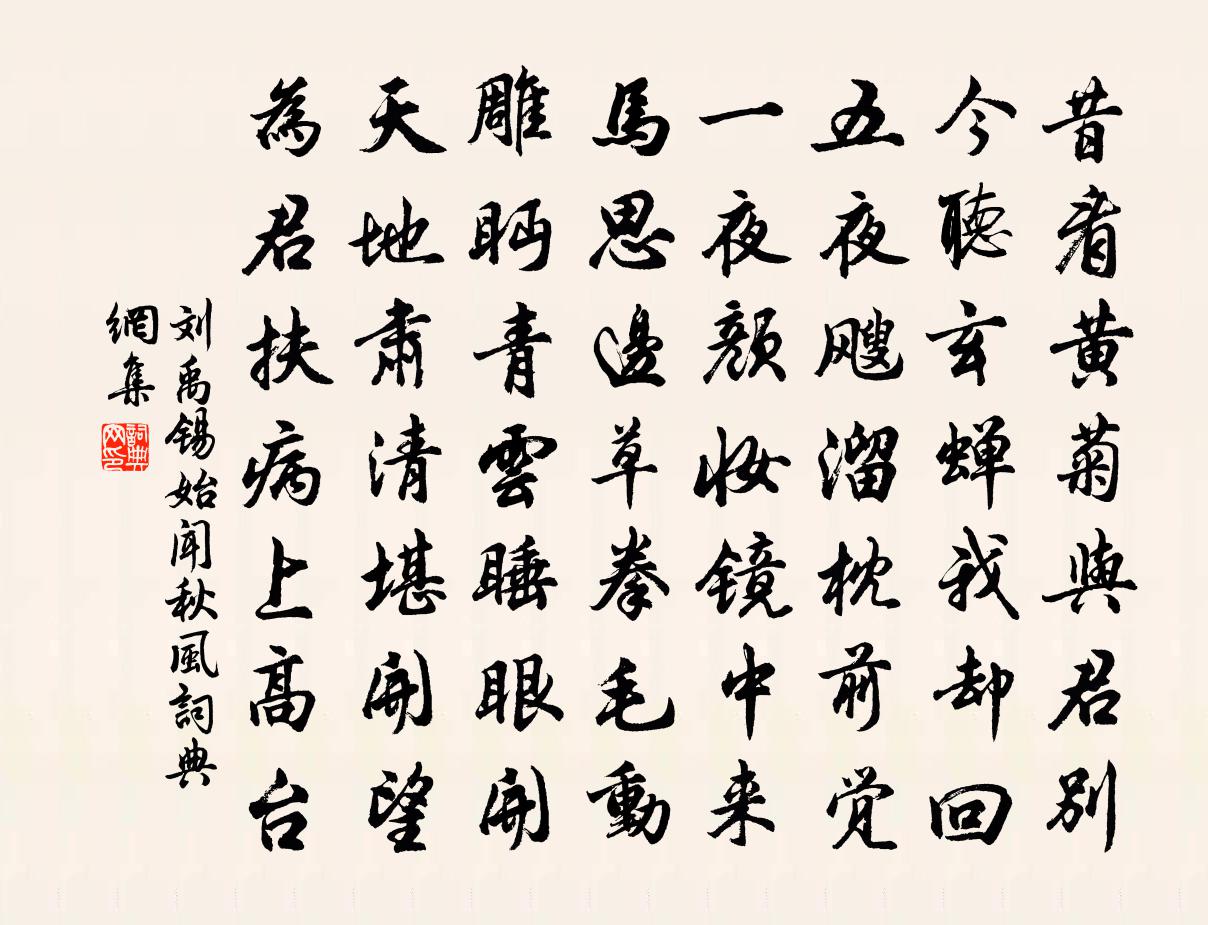 昔看黄菊與君別
今聽玄蝉我却回
五夜飕溜枕前觉
一夜颜妆镜中来
馬思邊草拳毛動
雕眄青雲睡眼開
天地肅清堪開望
為君扶病上高台
刘禹锡始闻秋風詞典
網集
詞典網印